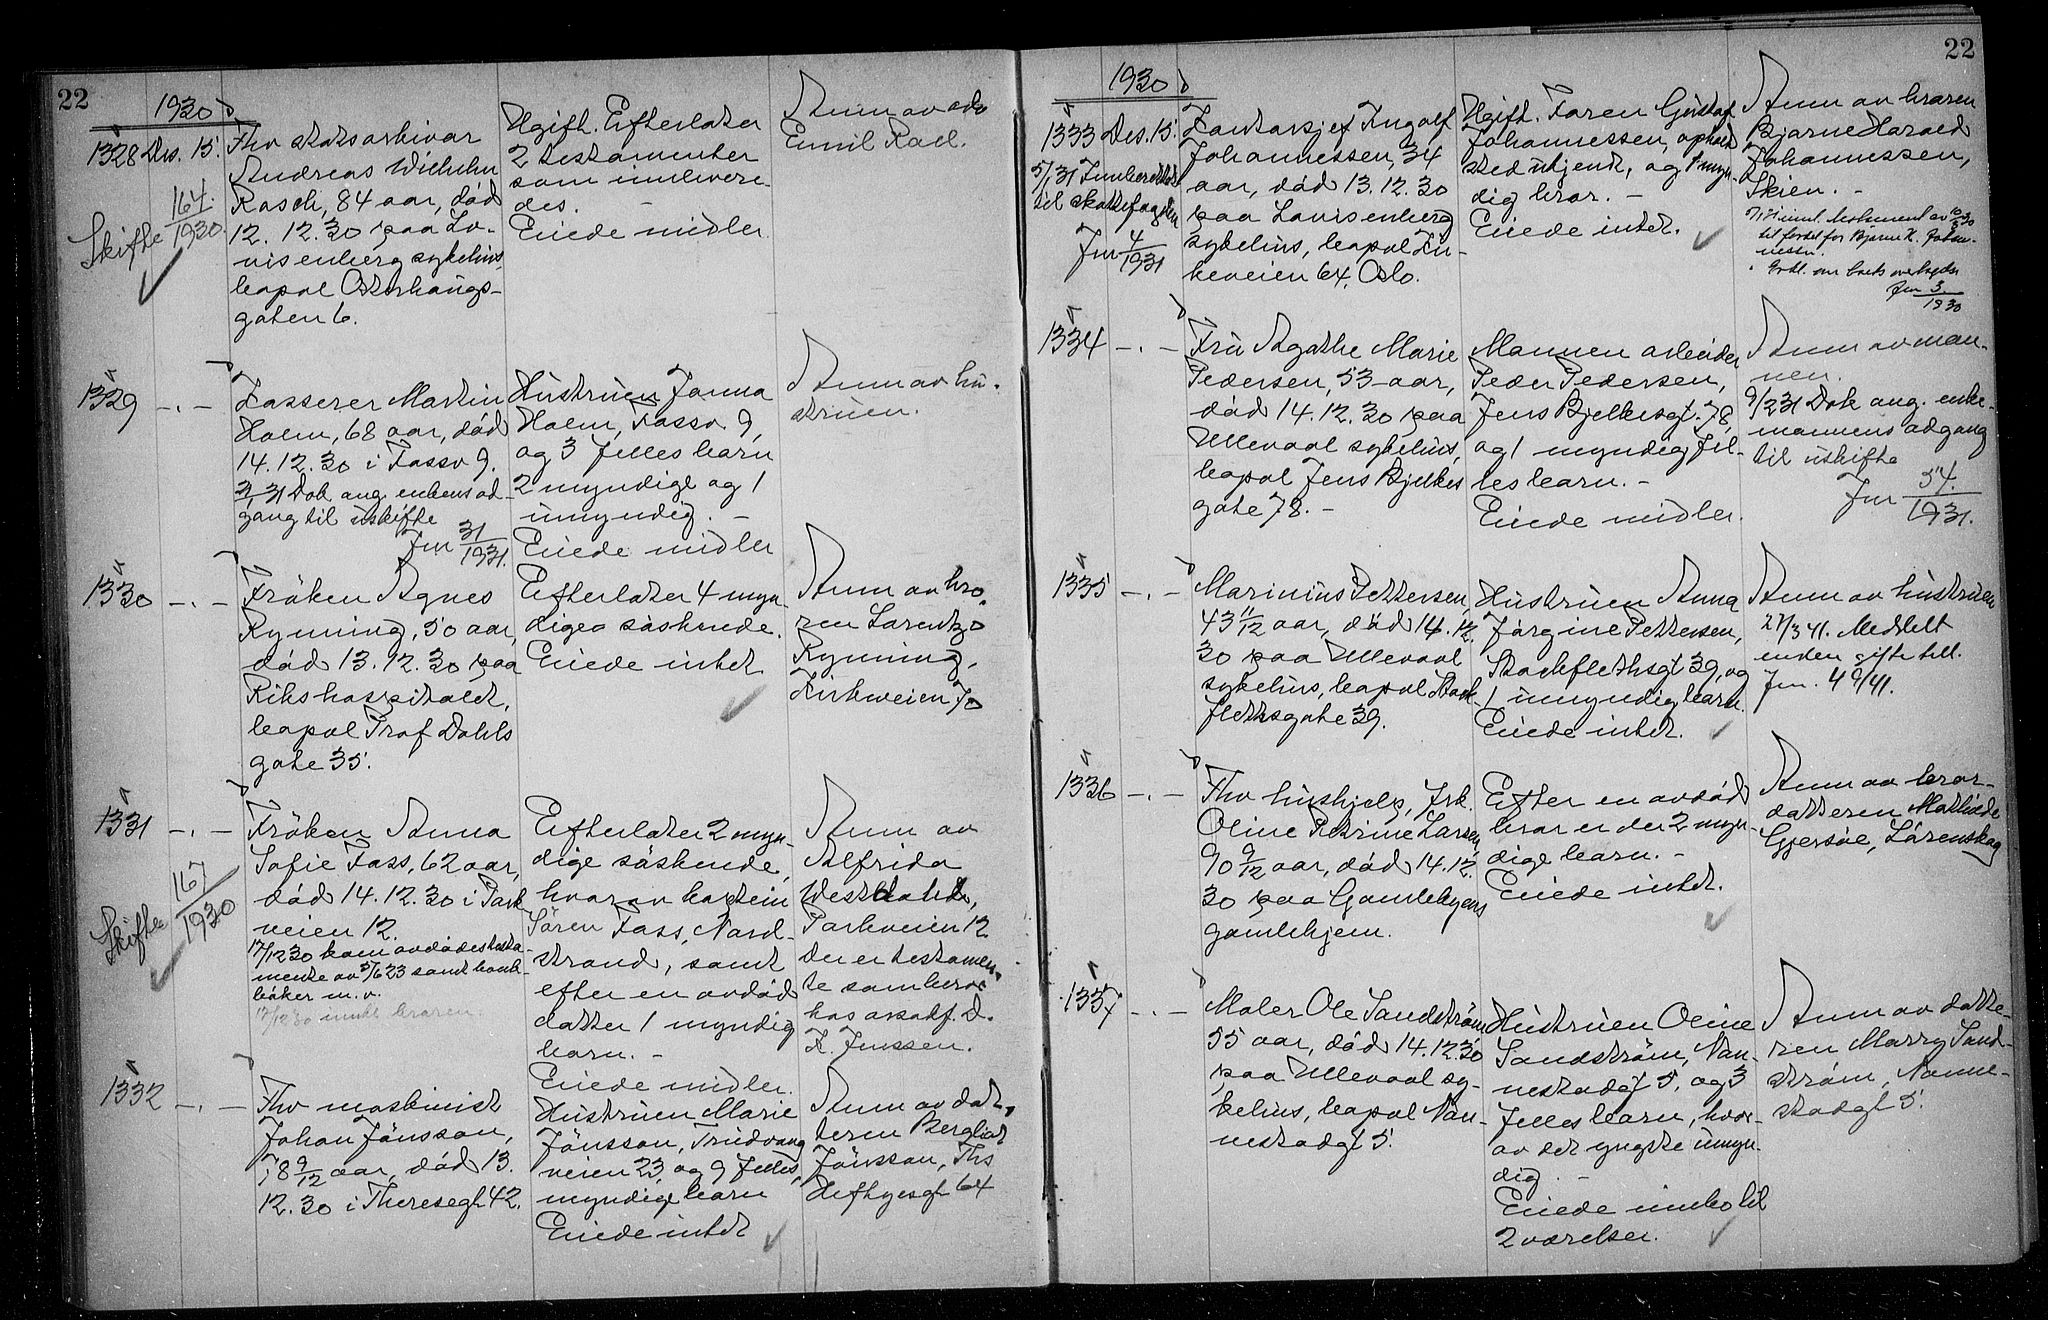 22
1930
1328 Des. 15.
Skifte 164/1930.
Fhv statsarkivar
Andreas Wilhelm
Rasch, 84 aar, död
12.12.30 paa Lo-
visenberg sykehus,
bopæl Osterhaugs-
gaten 6.
Ugift. Efterlater
2 testamenter
som innleveres
des. -
Eiede midler.
Anm av adv
Emil Rad.
1329 -.-
Kasserer Martin
Holm, 68 aar, död
14.12.30 i Fossv 9.
31 Dok ang. enkens ad-
gang til uskifte
Jnr 31/1931.
Hustruen Janna
Holm, Fossv. 9,
og 3 felles barn
2 myndige og 1
umyndig. -
Eiede midler
Anm av hu-
struen.
1330 -.-
Fröken Agnes
Rynning, 50 aar,
död 13.12.30 paa
Rikshospitalet,
bopæl Prof Dahls
gate 35.
Efterlater 4 myn-
dige söskende.
Eiede intet
Anm av bro-
ren Lorentz
Rynning,
Kirkeveien 70
1331 -.-
Skifte 167/1930
Fröken Anna
Sofie Fass, 62 aar,
död 14.12.30 i Park
veien 12.
17/12 30 kom avdödes testa-
mente av 5/6 23 samt bank-
böker m.v.
17/12 30 broren.
Efterlater 2 myn-
dige söskende,
hvorav kaptein
Sören Fass, Nord-
strand, samt
efter en avdöd
datter 1 myndig
barn. -
Eiede midler.
Anm av
Alfrida
Westdahl,
Parkveien 12
Der er testamen-
te som beror
hos o.r.sakf. D.
K. Jenssen.
1332 -.-
Fhv maskinist
Johan Jönsson,
78 9/12 aar, död 13.
12.30 i Theresegt 42.
Hustruen Marie
Jönsson, Trudvang
veien 23, og 9 felles,
myndige barn
Eiede intet
Anm av dat-
teren Bergliot
Jönsson, Ths
Heftyesgt 64
22
1930
1333 Des. 15.
5/1 31 Innberettet
til skattefogden
Jnr 4/1931
Kontorsjef Ingolf
Johannessen, 34
aar, död 13.12.30
paa Lovisenberg
sykehus, bopæl Kir-
keveien 64, Oslo.
Ugift. Faren Gustaf
Johannessen, opholds
sted ukjent, og 1 myn-
dig bror. -
Eiede intet.
Anm av broren
Bjarne Harald
Johannessen,
Skien. -
til fordel for Bjarne H. Johan-
nessen.
Jnr 3/1930
1334 -.-
Fru Agathe Marie
Pedersen, 53 aar,
död 14.12.30 paa
Ullevaal sykehus,
bopæl Jens Bjelkes
gate 78. -
Mannen arbeider
Peder Pedersen,
Jens Bjelkesgt. 78,
og 1 myndig fel-
les barn. -
Eiede midler.
Anm av man-
nen.
9/2 31 Dok ang. enke-
mannens adgang
til uskifte
Jnr 54/1931.
1335 -.-
Marinius Pettersen,
43 11/12 aar, död 14.12.
30 paa Ullevaal
sykehus, bopæl Stock-
flethsgate 39.
Hustruen Anna
Jörgine Pettersen,
Stockflethsgt 39, og
1 umyndig barn.
Eiede intet.
Anm av hustruen
27/3 41. Meddelt
enken gifte till.
Jnr. 49/41.
1336 -.-
Fhv hushjelp, frk.
Oline Petrine Larsen,
90 9/12 aar, död 14.12.
30 paa Gamlebyens
gamlehjem.
Efter en avdöd
bror er der 2 myn-
dige barn. -
Eiede intet.
Anm av bror-
datteren Mathilde
Gjersöe, Lörenskog
1337 -.-
Maler Ole Sandström
55 aar, död 14.12.30
paa Ullevaal sy-
kehus, bopæl Nan-
nestadgt 5.
Hustruen Oline
Sandström, Nan-
nestadgt 5, og 3
felles barn, hvor-
av det yngste umyn-
dig. -
Eiede innbo til
2 værelser.
Anm av datte-
ren Marry Sand-
ström, Nanne-
stadgt 5.